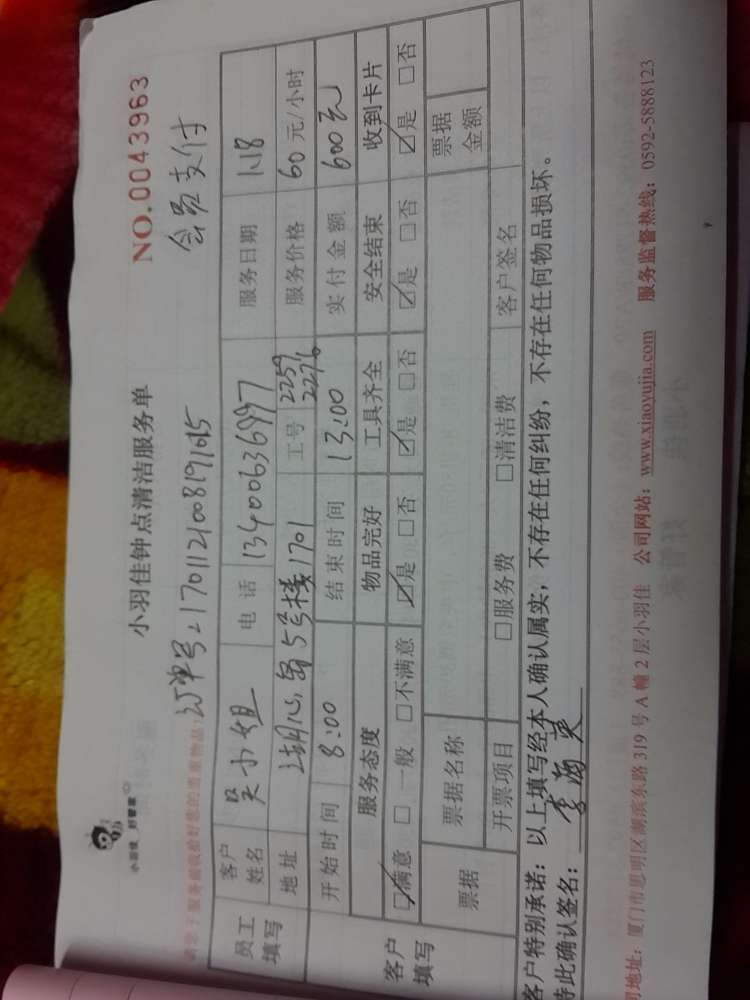 小羽佳 好管家
小羽佳钟点清洁服务单
NO.0043963
订单号21701121008191015
会员支付
员工填写
客户姓名 吴小姐 电话 13400636997 服务日期 1.18
地址 湖心岛5号楼1701 工号 2259 2276 服务价格 60元/小时
开始时间 8:00 结束时间 13:00 实付金额 600元
客户填写
服务态度 物品完好 工具齐全 安全结束 收到卡片
☑满意 □一般 □不满意 ☑是 □否 ☑是 □否 ☑是 □否 ☑是 □否
票据 票据名称 票据金额
开票项目 □服务费 □清洁费 客户签名
客户特别承诺：以上填写经本人确认属实，不存在任何纠纷，不存在任何物品损坏。
特此确认签名：李海英
司地址：厦门市思明区湖滨东路319号A幢2层小羽佳 公司网站：www.xiaoyujia.com 服务监督热线：0592-5888123